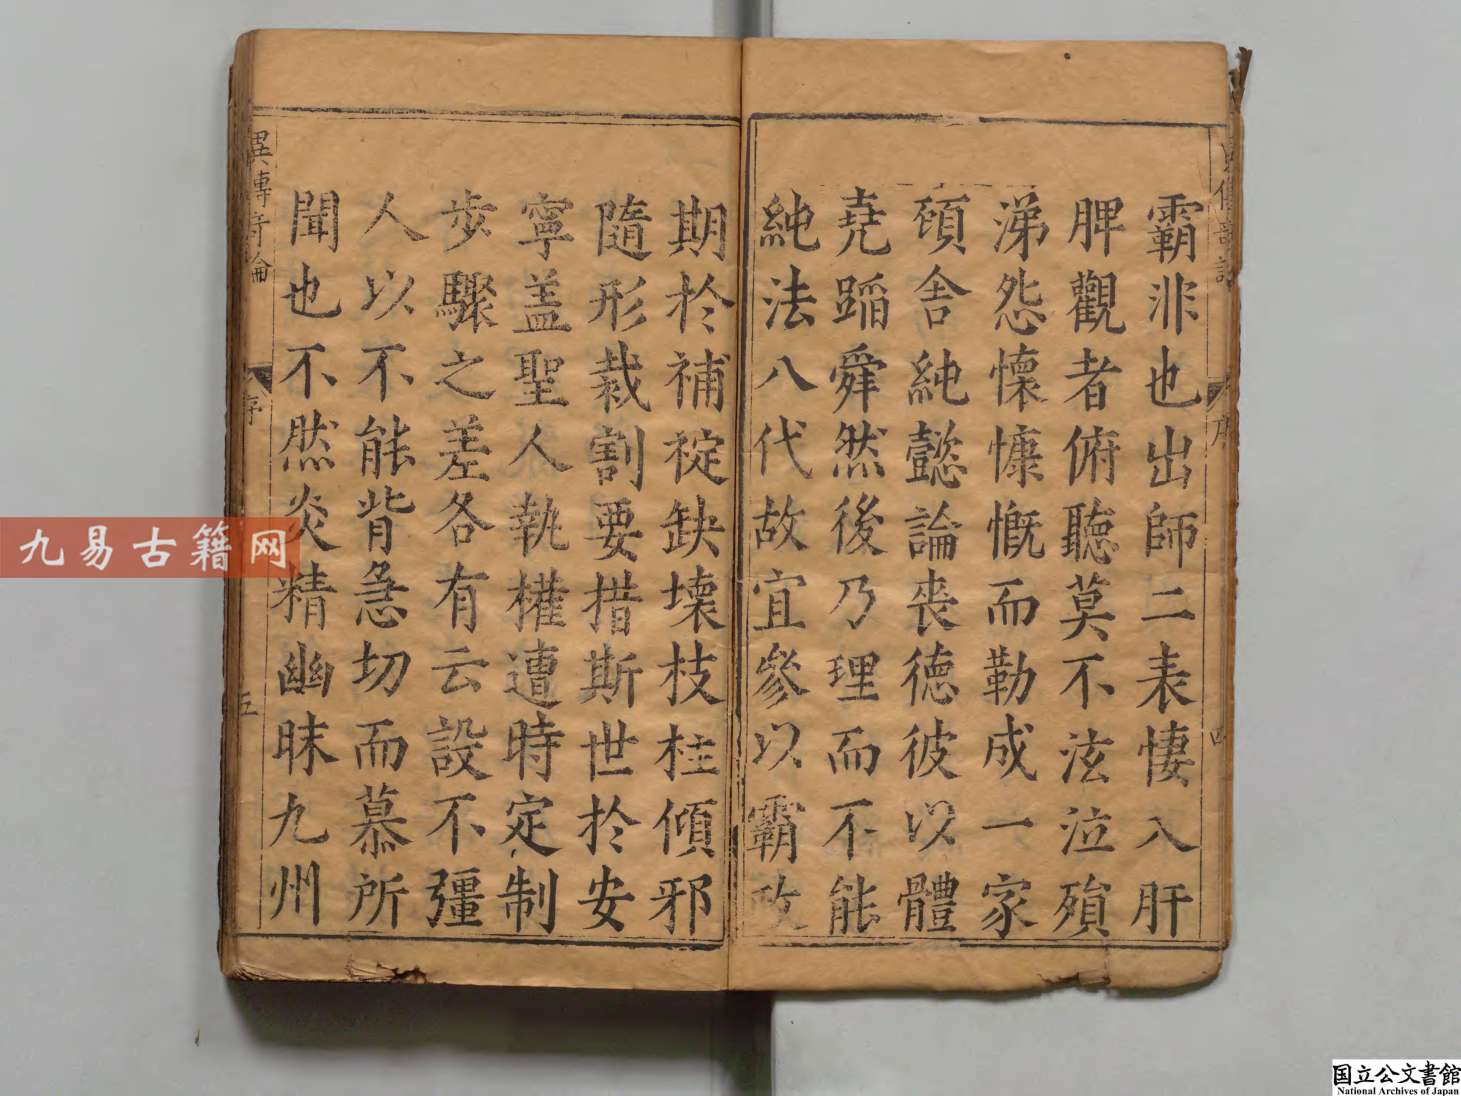 霸非也出師二表悽入肝
脾觀者俯聽莫不泫泣殞
涕怨懷慷慨而勒成一家
碩舍純懿論喪德彼以體
堯蹈舜然後乃理而不能
純法八代故宜參以霸政
期於補䘺缺壞枝柱傾邪
隨形裁割要措斯世於安
寧盖聖人執權遭時定制
步驟之差各有云設不彊
人以不能背急切而慕所
聞也不然炎精幽昧九州
異傳奇論
序
五
序
四
九易古籍网
国立公文書館
National Archives of Japan